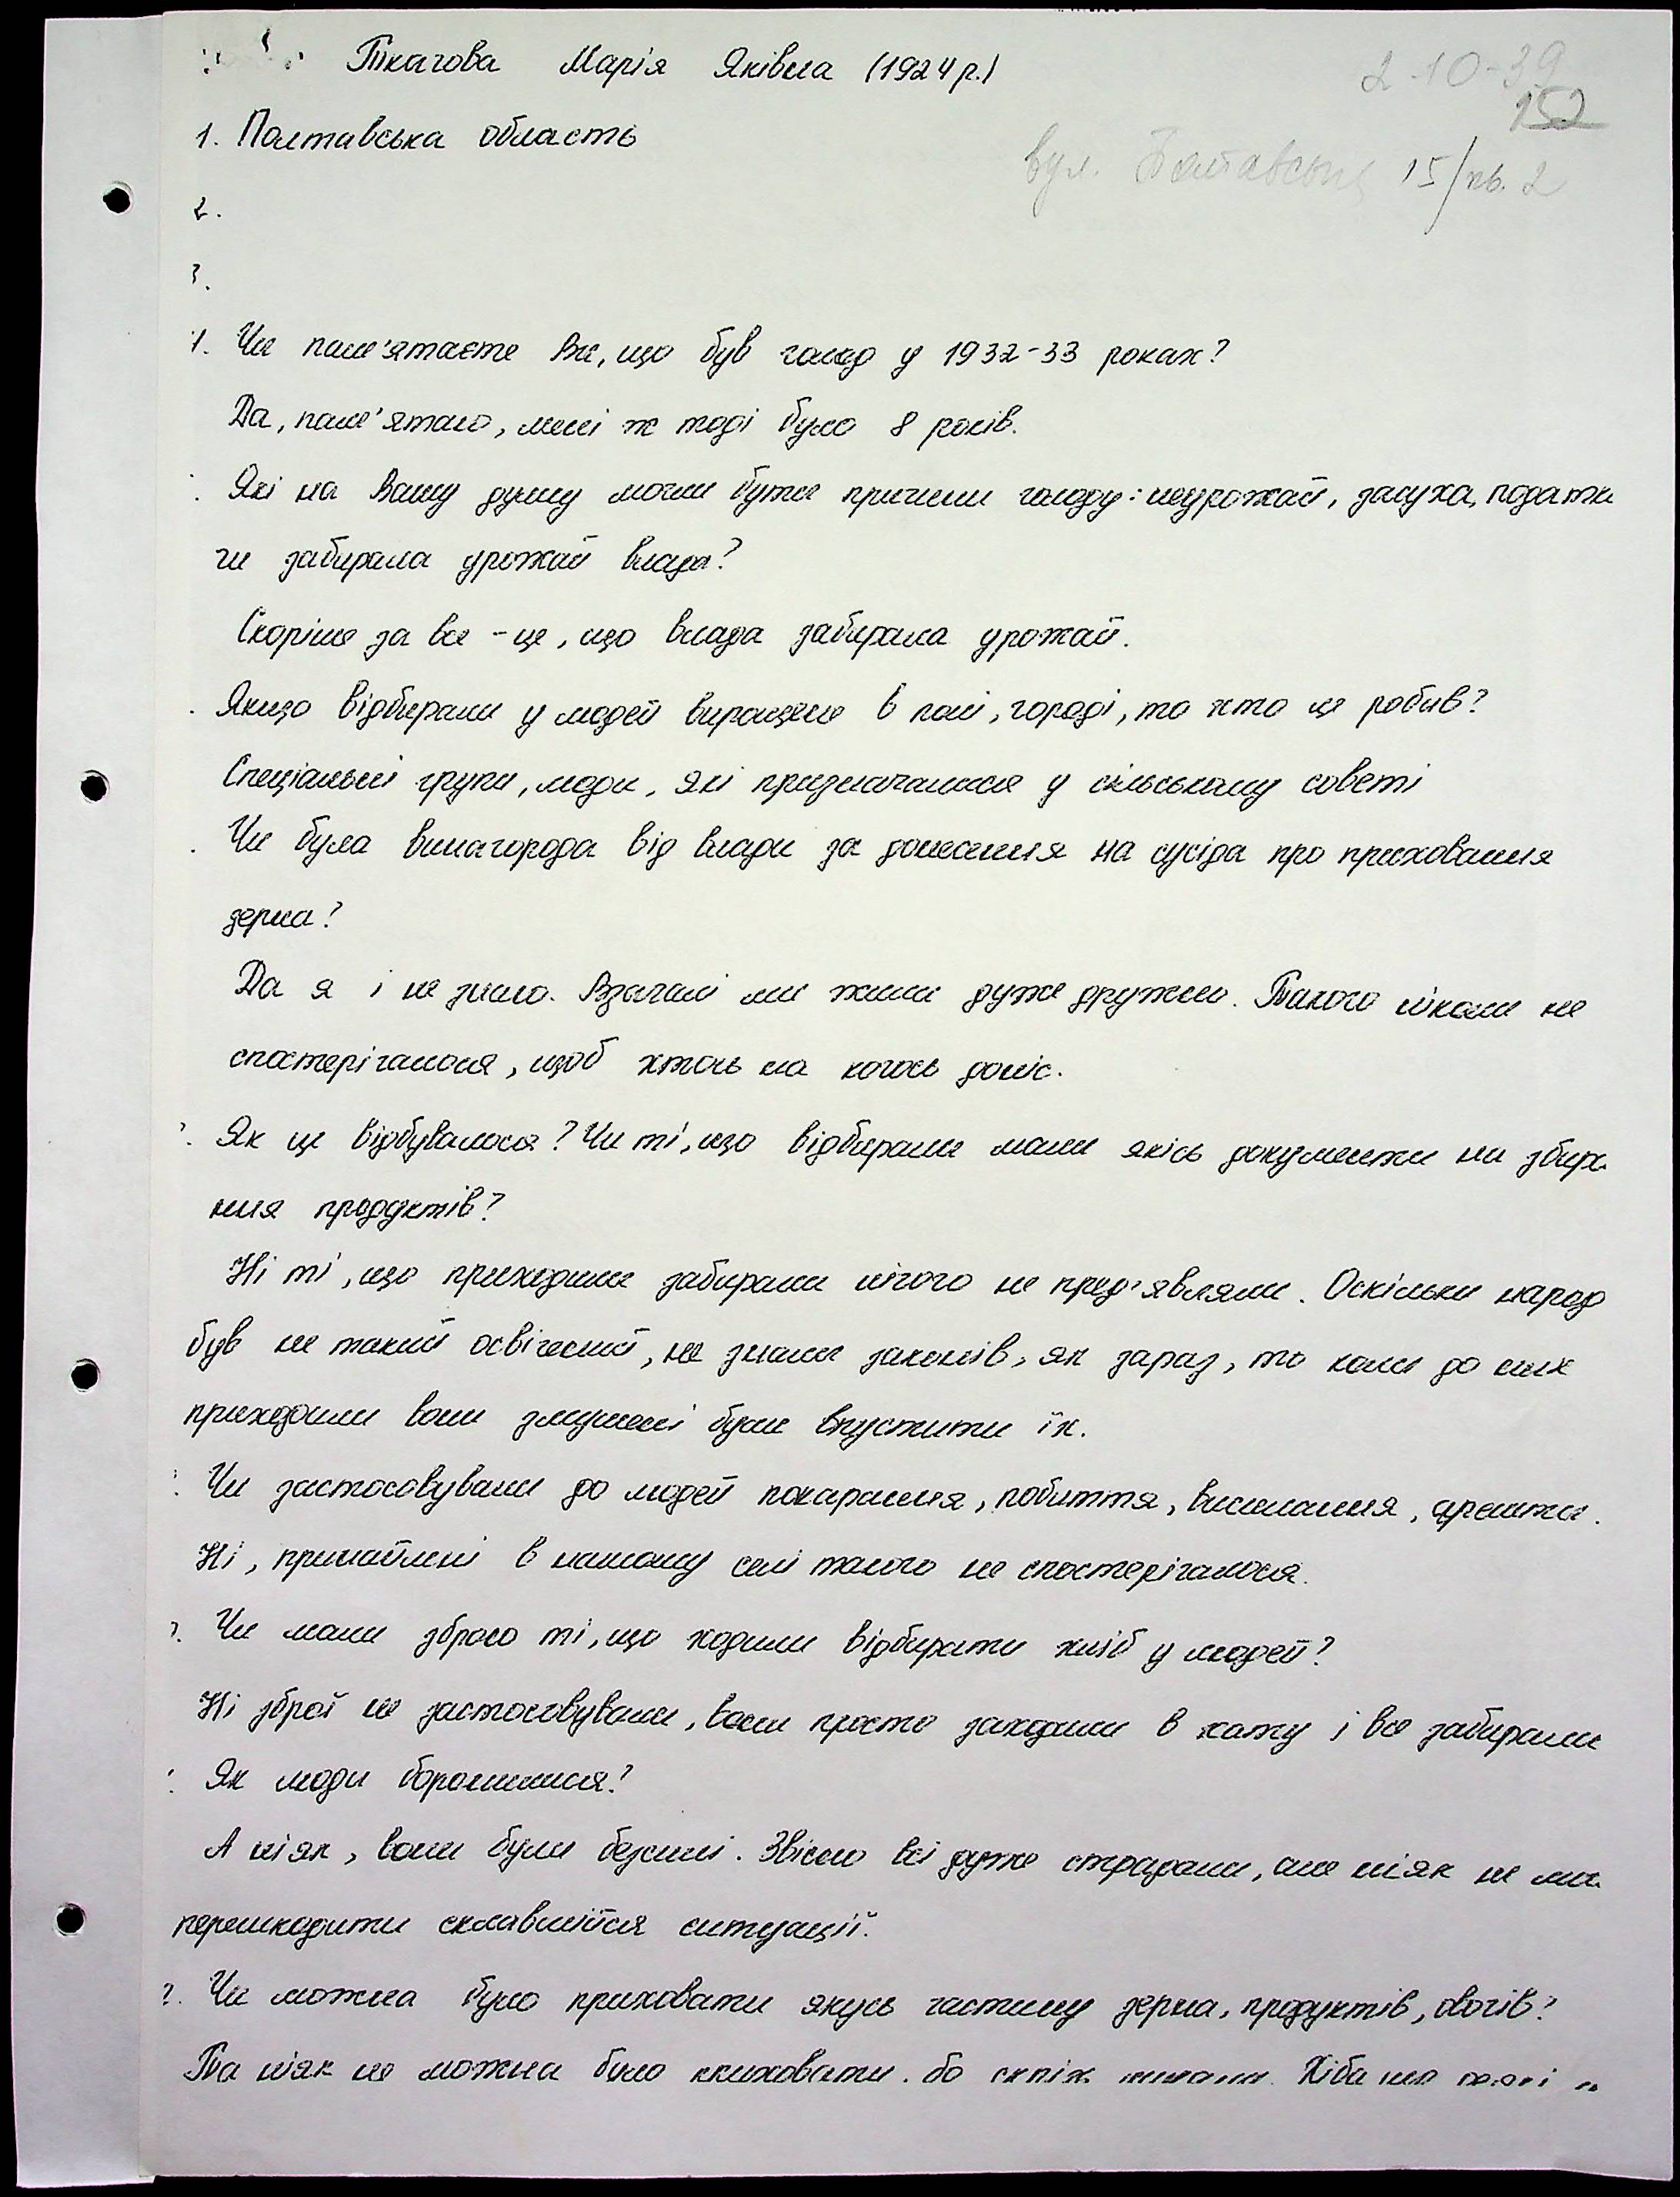 Ткачова Марія Яківна (1924 р.)
2-10-39
152
1. Полтавська область
вул. 15/кв. 2
2.
3.
1. Чи пам'ятаєте Ви, що був голод у 1932-33 роках?
Да, пам'ятаю, мені ж тоді було 8 років.
Які на Вашу думку могли бути причини голоду: неурожай, засуха, податки
чи забирала урожай влада?
Скоріше за все - це, що влада забирала урожай.
Якщо відбирали у людей вирощене в полі, городі, то хто це робив?
Спеціальні групи, люди, які призначалися у сільському совєті
Чи була винагорода від влади за донесення на сусіда про приховання
зерна?
Да я і не знаю. Взагалі ми жили дуже дружно. Такого ніколи не
спостерігалося, щоб хтось на когось доніс.
Як це відбувалося? Чи ті, що відбирали мали якісь документи на збира
ння продуктів?
Ні ті, що приходили забирали нічого не пред'являли. Оскільки народ
був не такий освічений, не знали законів, як зараз, то коли до них
приходили вони змушені були впустити їх.
Чи застосовували до людей покарання, побиття, висилання, арешти.
Ні, принаймні в нашому селі такого не спостерігалося.
Чи мали зброю ті, що ходили відбирати хліб у людей?
Ні зброї не застосовували, вони просто заходили в хату і все забирали
Як люди боронилися?
А ніяк, вони були безсилі. Звісно всі дуже страдали, але ніяк не
перешкодити склавшійся ситуації.
Чи можна було приховати якусь частину зерна, продуктів, овочів?
Та ніяк не можна було приховати. бо скрізь Хіба що